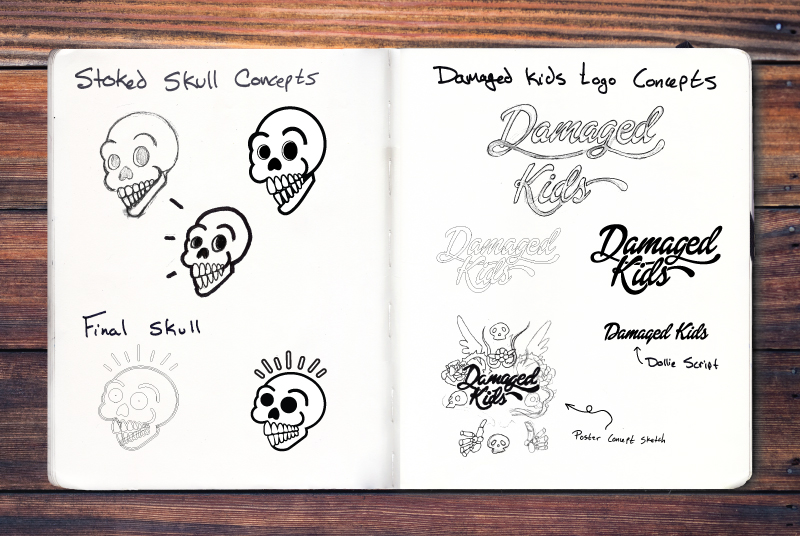 Stoked Skull Concepts
Final Skull
Damaged Kids Logo Concepts
Damaged
Kids
Damaged
Kids
Damaged
Kids
Damaged Kids
Dollie Script
Damaged
Kids
Poster Concept Sketch